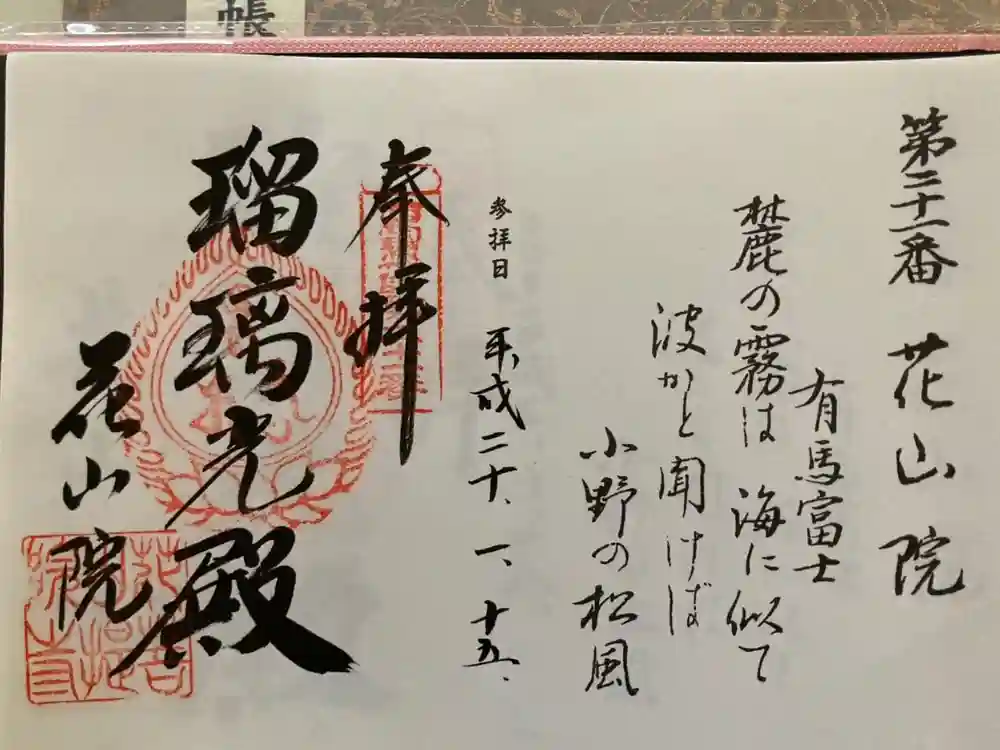 帳
第二十一番 花山院
有馬富士
麓の霧は 海に似て
波かと聞けば
小野の松風
参拝日 平成二十、一、十五、
奉拝
瑠璃光殿
花山院